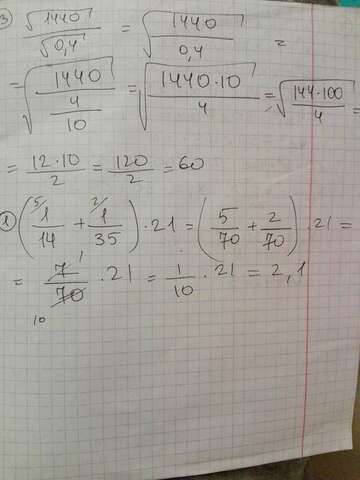 ③ √1440 / √0,4 = √(1440 / 0,4) =
= √(1440 / (4/10)) = √(1440·10 / 4) = √(144·100 / 4) =
= 12·10 / 2 = 120 / 2 = 60
① (⁵⁄ 1/14 + ²⁄ 1/35) · 21 = (5/70 + 2/70) · 21 =
= 7 1 / 70 10 · 21 = 1/10 · 21 = 2,1